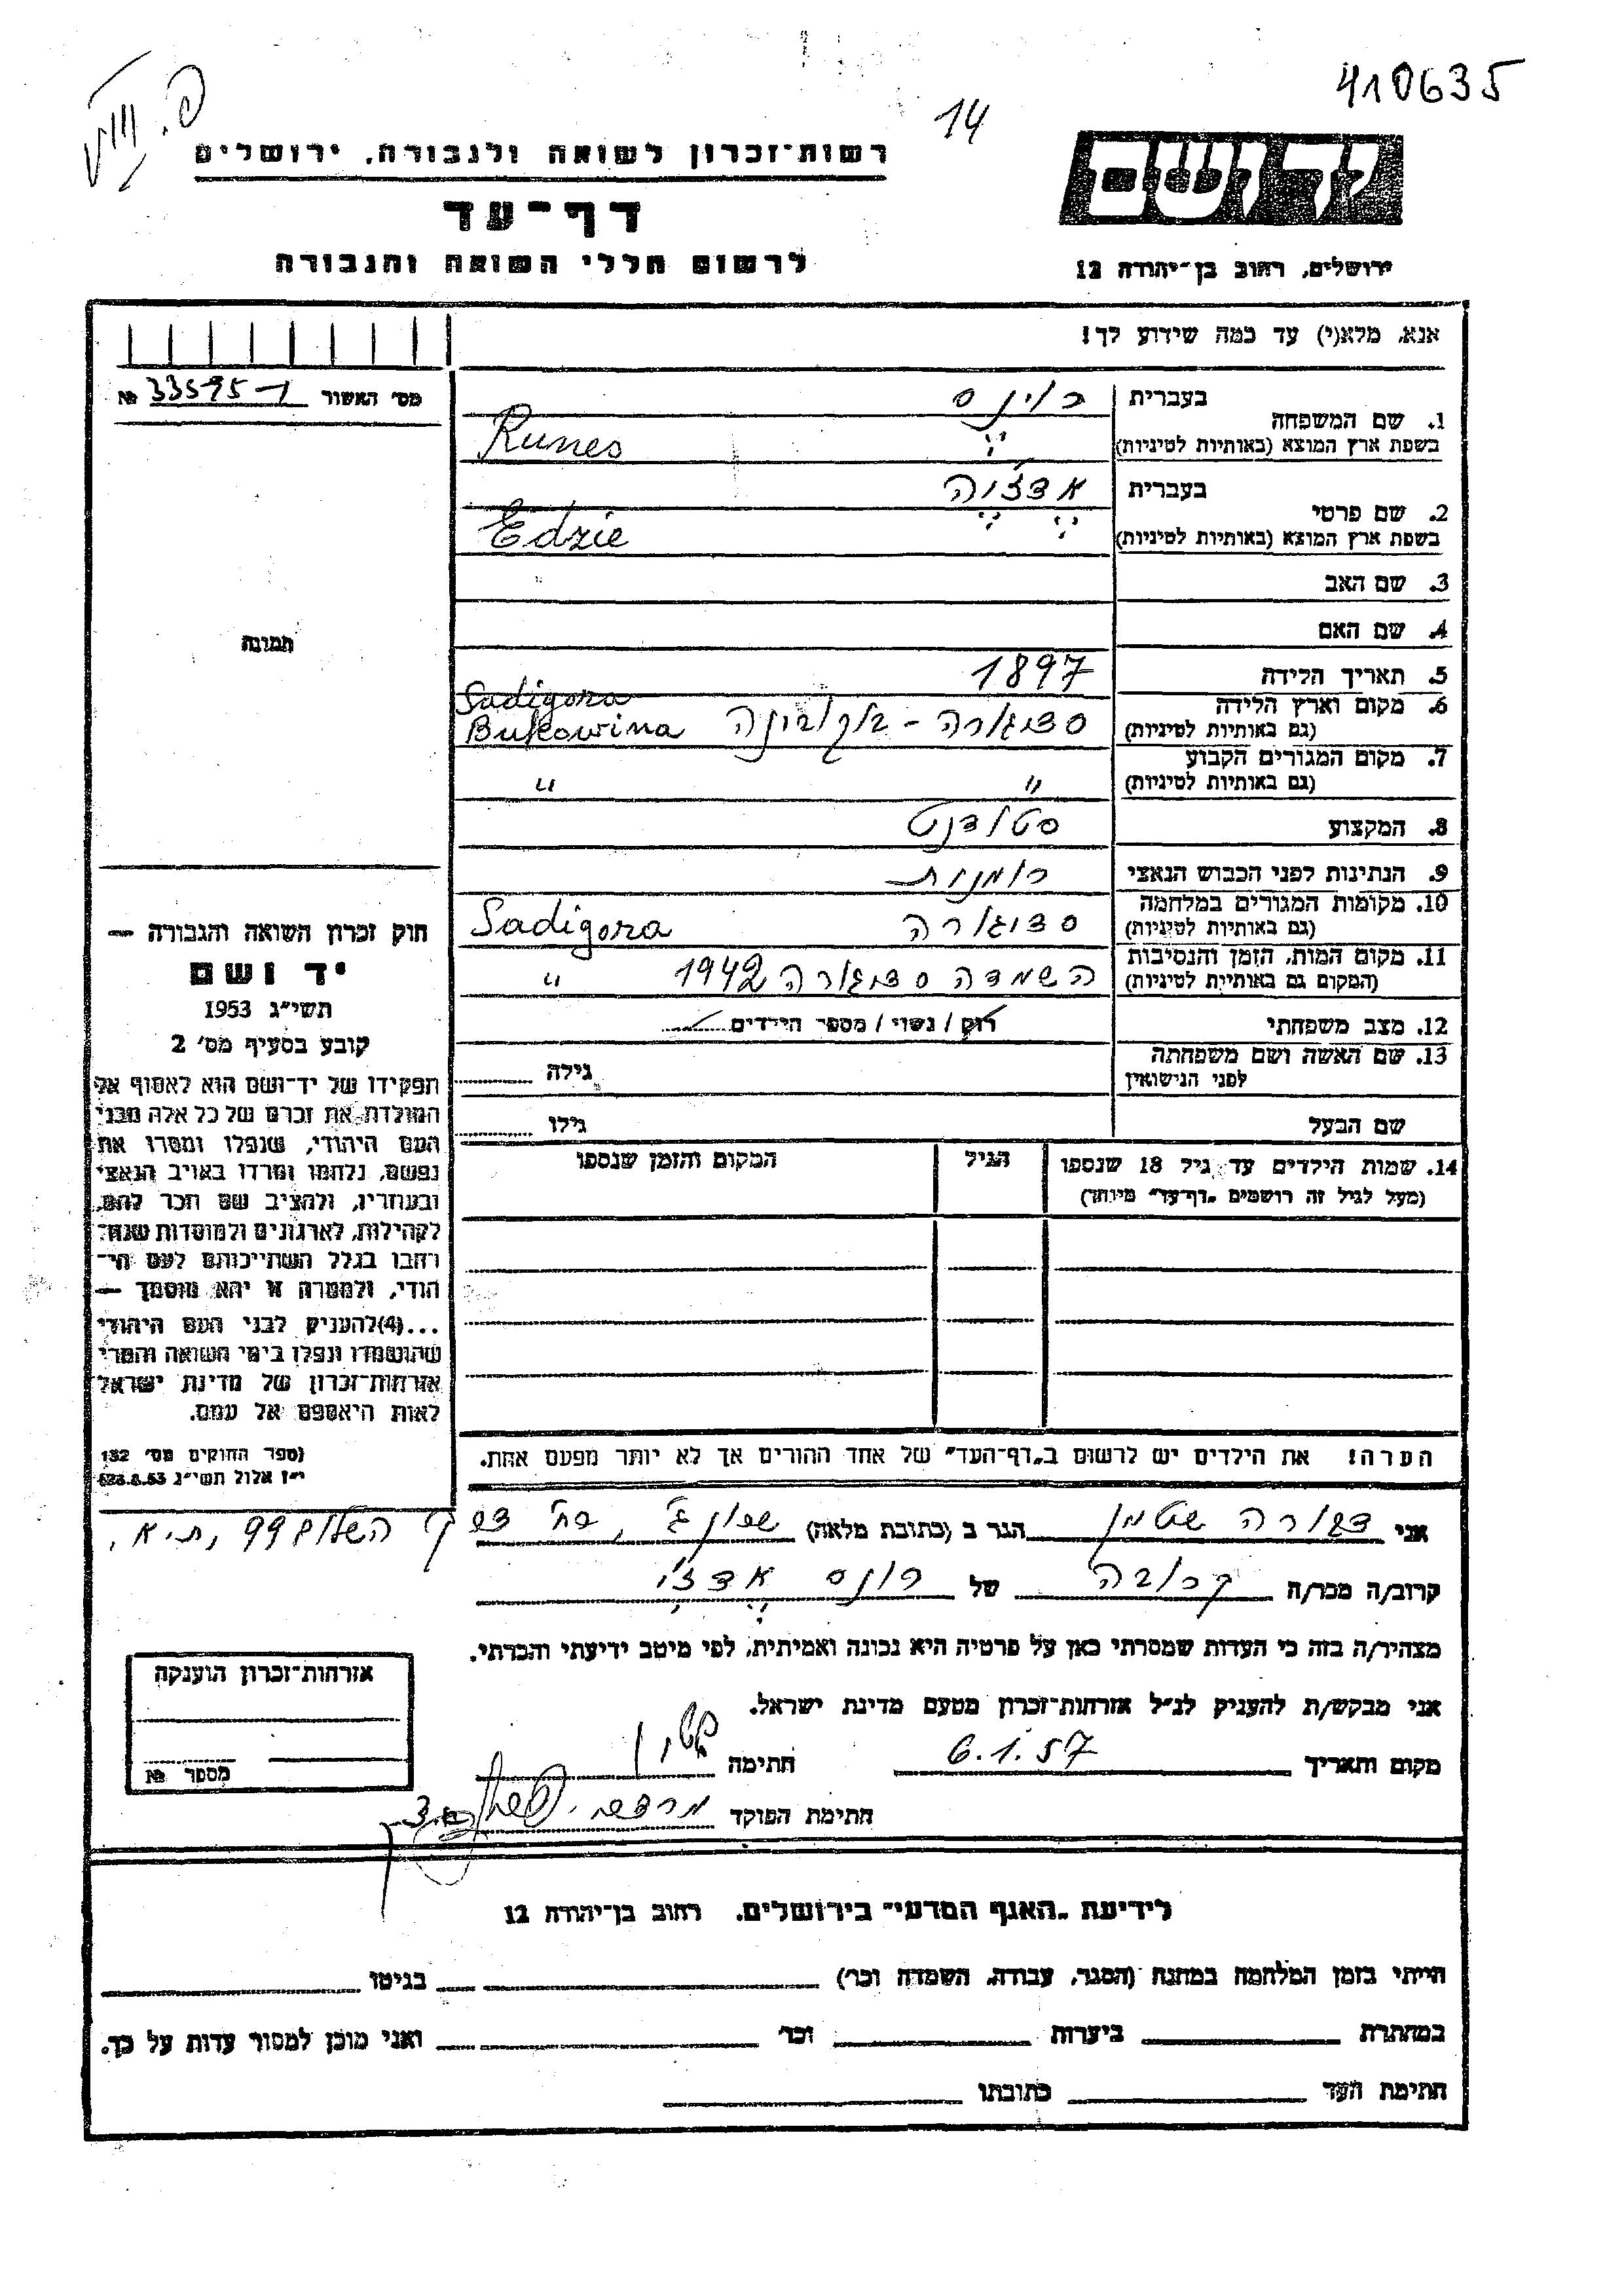 410635
14
רשות־זכרון לשואה ולגבורה, ירושלים
דף־עד
לרשום חללי השואה והגבורה
יד ושם
ירושלים, רחוב בן־יהודה 12
אנא, מלא(י) עד כמה שידוע לך!
מס' האשור 33595-1 №
תמונה
1. שם המשפחה
בעברית רוינס
בשפת ארץ המוצא (באותיות לטיניות) Runes
2. שם פרטי
בעברית אדז'יה
בשפת ארץ המוצא (באותיות לטיניות) Edzie
3. שם האב
4. שם האם
5. תאריך הלידה 1897
6. מקום וארץ הלידה
(גם באותיות לטיניות) סדיגורה - בוקובינה Sadigora Bukowina
7. מקום המגורים הקבוע
(גם באותיות לטיניות) " "
8. המקצוע סטודנט
9. הנתינות לפני הכבוש הנאצי רומנית
10. מקומות המגורים במלחמה
(גם באותיות לטיניות) סדיגורה Sadigora
11. מקום המות, הזמן והנסיבות
(המקום גם באותיות לטיניות) השמדה סדיגורה 1942 "
12. מצב משפחתי רוק / נשוי / מספר הילדים
13. שם האשה ושם משפחתה
לפני הנישואין גילה
שם הבעל גילו
14. שמות הילדים עד גיל 18 שנספו
(מעל לגיל זה רושמים „דף־עד" מיוחד)
הגיל
המקום והזמן שנספו
חוק זכרון השואה והגבורה —
יד ושם
תשי"ג 1953
קובע בסעיף מס' 2
תפקידו של יד־ושם הוא לאסוף אל
המולדת את זכרם של כל אלה מבני
העם היהודי, שנפלו ומסרו את
נפשם, נלחמו ומרדו באויב הנאצי
ובעוזריו, ולהציב שם וזכר להם,
לקהילות, לארגונים ולמוסדות שנח־
רבו בגלל השתייכותם לעם הי־
הודי, ולמטרה זו יהא מוסמך —
...(4) להעניק לבני העם היהודי
שהושמדו ונפלו בימי השואה והמרי
אזרחות־זכרון של מדינת ישראל
לאות היאספם אל עמם.
(ספר החוקים מס' 132
י"ז אלול תשי"ג 28.8.53)
הערה! את הילדים יש לרשום ב„דף־העד" של אחד ההורים אך לא יותר מפעם אחת.
אני דבורה שטמן הגר ב (כתובת מלאה) השלום 99, ת.א.
קרוב/ה מכר/ה קרובה של רונס אדז'י
מצהיר/ה בזה כי העדות שמסרתי כאן על פרטיה היא נכונה ואמיתית, לפי מיטב ידיעתי והכרתי.
אני מבקש/ת להעניק לנ"ל אזרחות־זכרון מטעם מדינת ישראל.
מקום ותאריך 6.1.57 חתימה
חתימת הפוקד
אזרחות־זכרון הוענקה
מספר №
לידיעת „האגף המדעי" בירושלים, רחוב בן־יהודה 12
הייתי בזמן המלחמה במחנה (הסגר, עבודה, השמדה וכו') בגיטו
במחתרת ביערות וכו' ואני מוכן למסור עדות על כך.
חתימת העד כתובתו